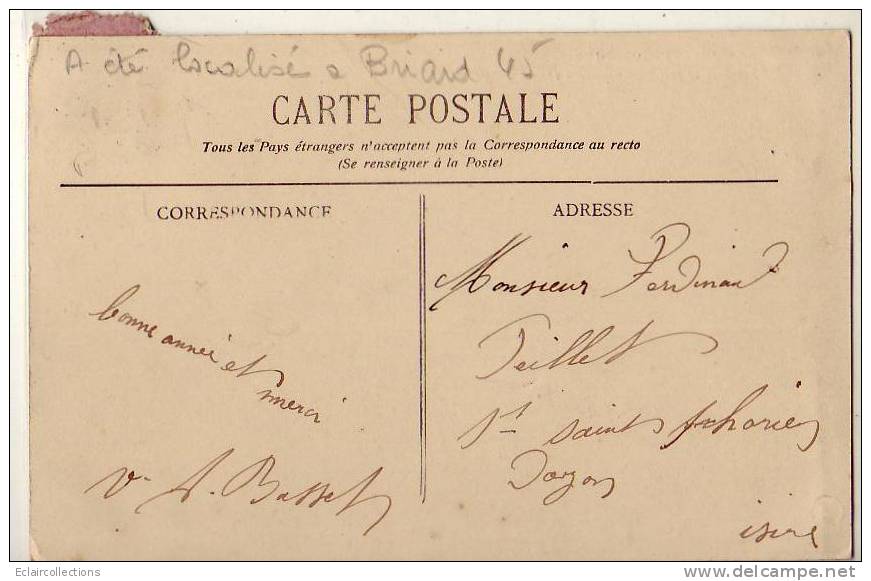 A été localisé a Briard 45
CARTE POSTALE
Tous les Pays étrangers n'acceptent pas la Correspondance au recto
(Se renseigner à la Poste)
CORRESPONDANCE
ADRESSE
bonne année et
merci
V. Basset
Monsieur Ferdinand
Teillet
St saint
isère
Eclaircollections
www.delcampe.net